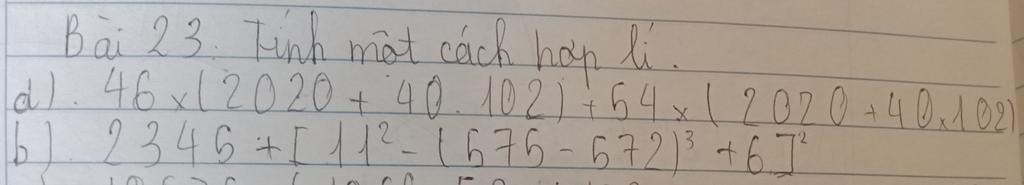 Bài 23. Tính một cách hợp lí.
a). 46 x (2020 + 40.102) + 54 x (2020 + 40x102)
b). 2345 + [11² - (575 - 572)³ + 6]²